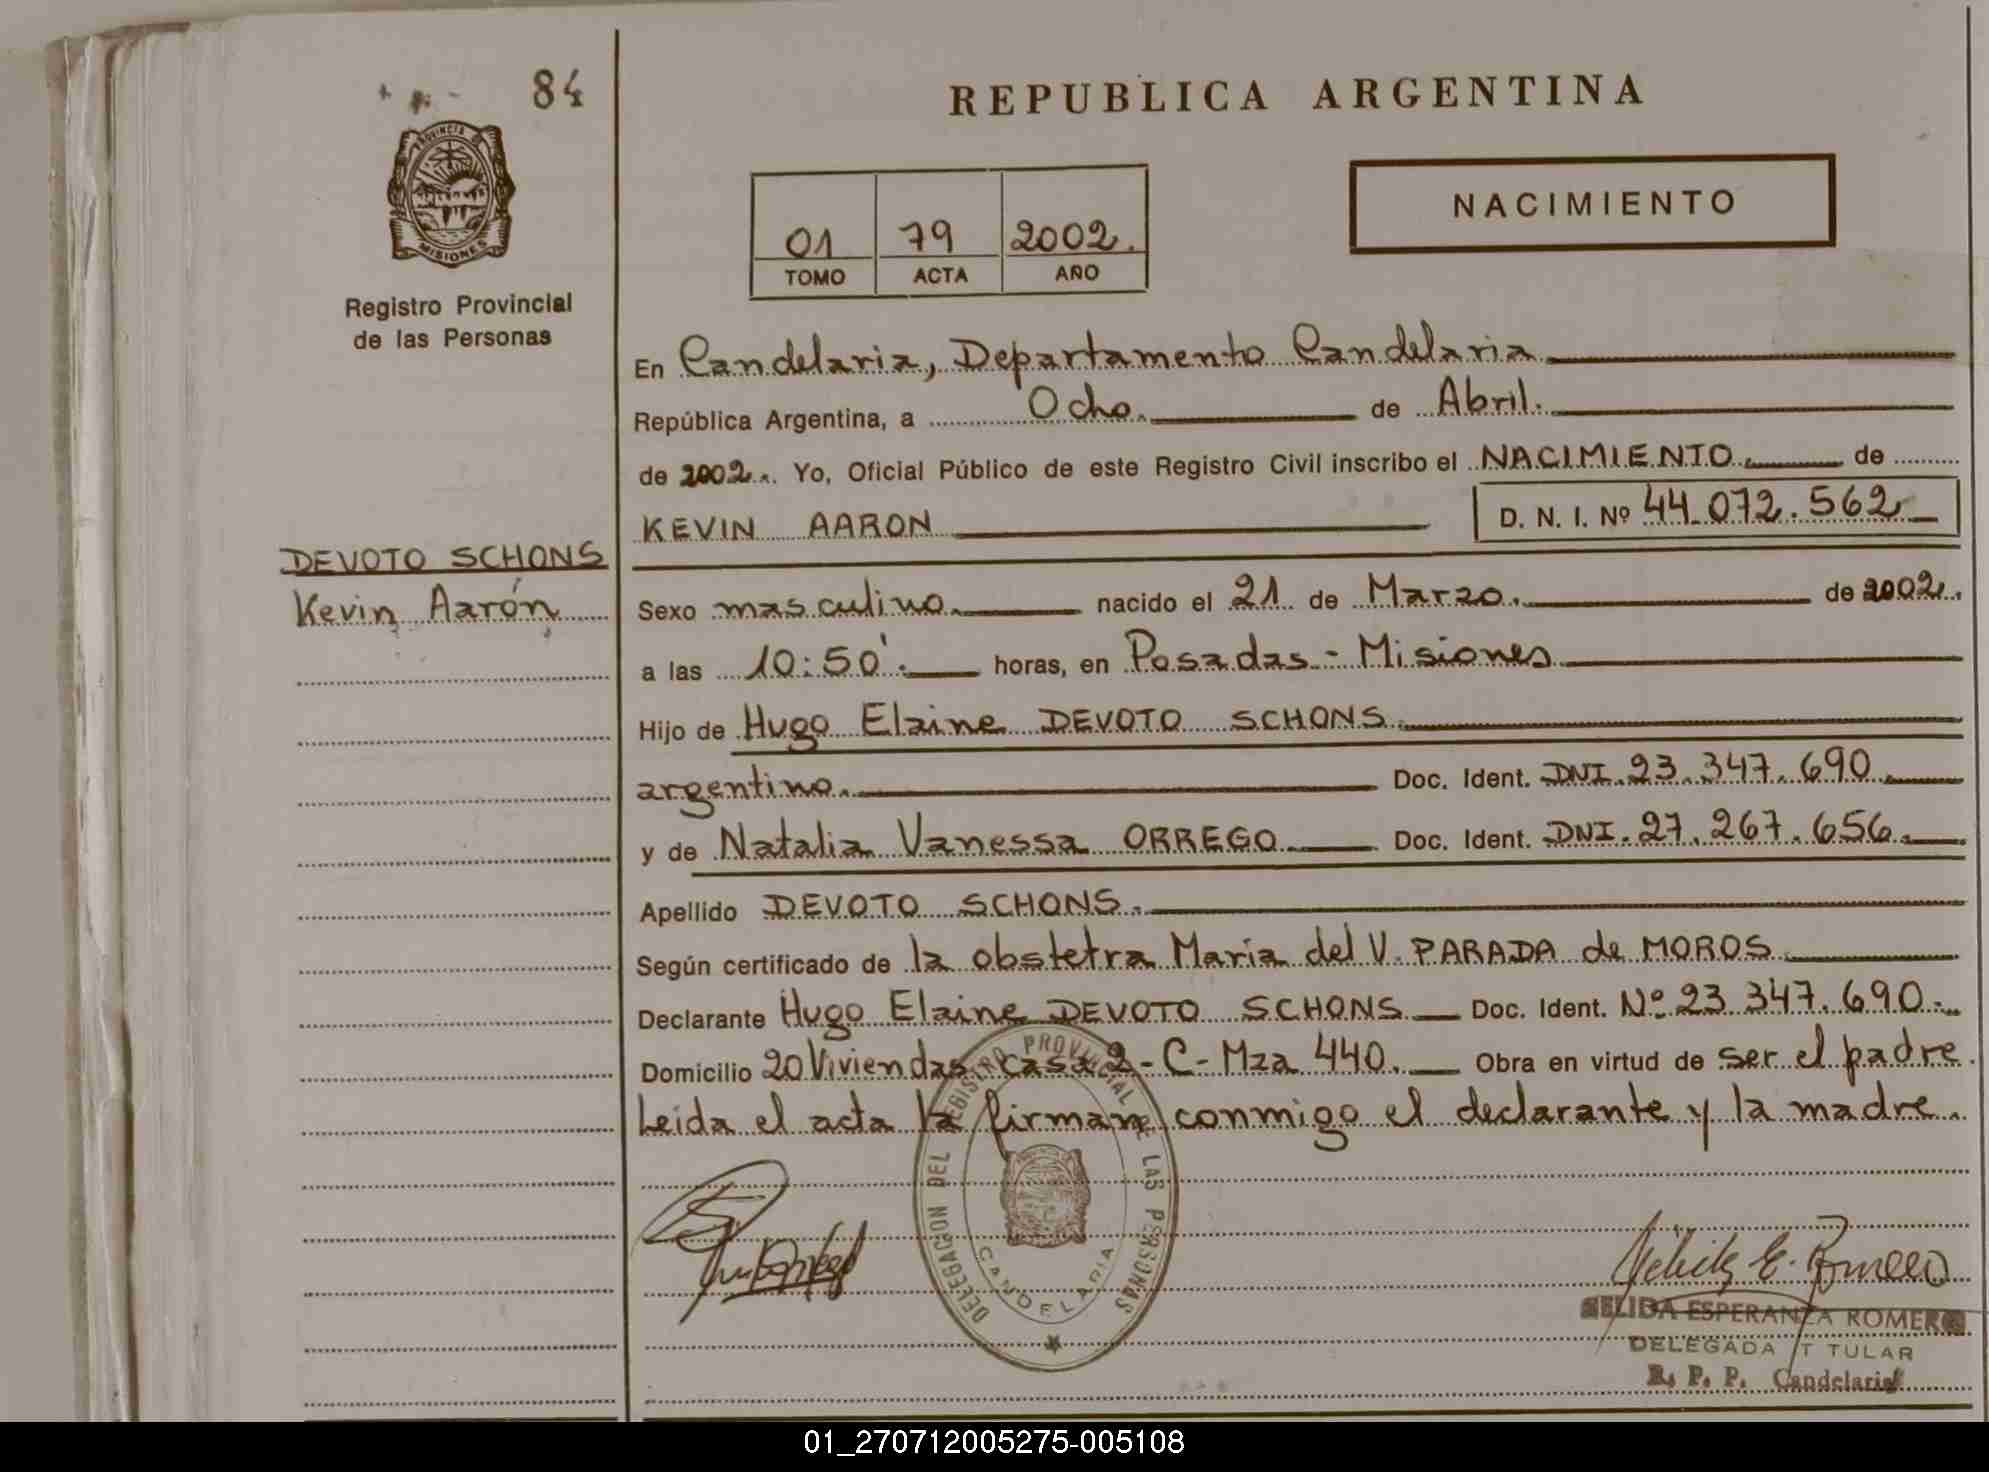 84
REPUBLICA ARGENTINA
PROVINCIA DE
MISIONES
Registro Provincial
de las Personas
NACIMIENTO
01 79 2002.
TOMO ACTA AÑO
En Candelaria, Departamento Candelaria
República Argentina, a Ocho. de Abril.
de 2002. Yo, Oficial Público de este Registro Civil inscribo el NACIMIENTO. de
KEVIN AARON D. N. I. Nº 44.072.562
DEVOTO SCHONS
Kevin Aarón
Sexo masculino. nacido el 21 de Marzo. de 2002.
a las 10:50'. horas, en Posadas - Misiones
Hijo de Hugo Elaine DEVOTO SCHONS.
argentino. Doc. Ident. DNI. 23.347.690
y de Natalia Vanessa ORREGO. Doc. Ident. DNI. 27.267.656.
Apellido DEVOTO SCHONS.
Según certificado de la obstetra Maria del V. PARADA de MOROS.
Declarante Hugo Elaine DEVOTO SCHONS Doc. Ident. Nº 23.347.690.
Domicilio 20 Viviendas casa 2-C-Mza 440. Obra en virtud de ser el padre.
Leida el acta la firman conmigo el declarante y la madre.
DELEGACION DEL REGISTRO PROVINCIAL DE LAS PERSONAS
CANDELARIA
ESPERANZA ROMERO
DELEGADA TITULAR
R. P. P. Candelaria
01_270712005275-005108